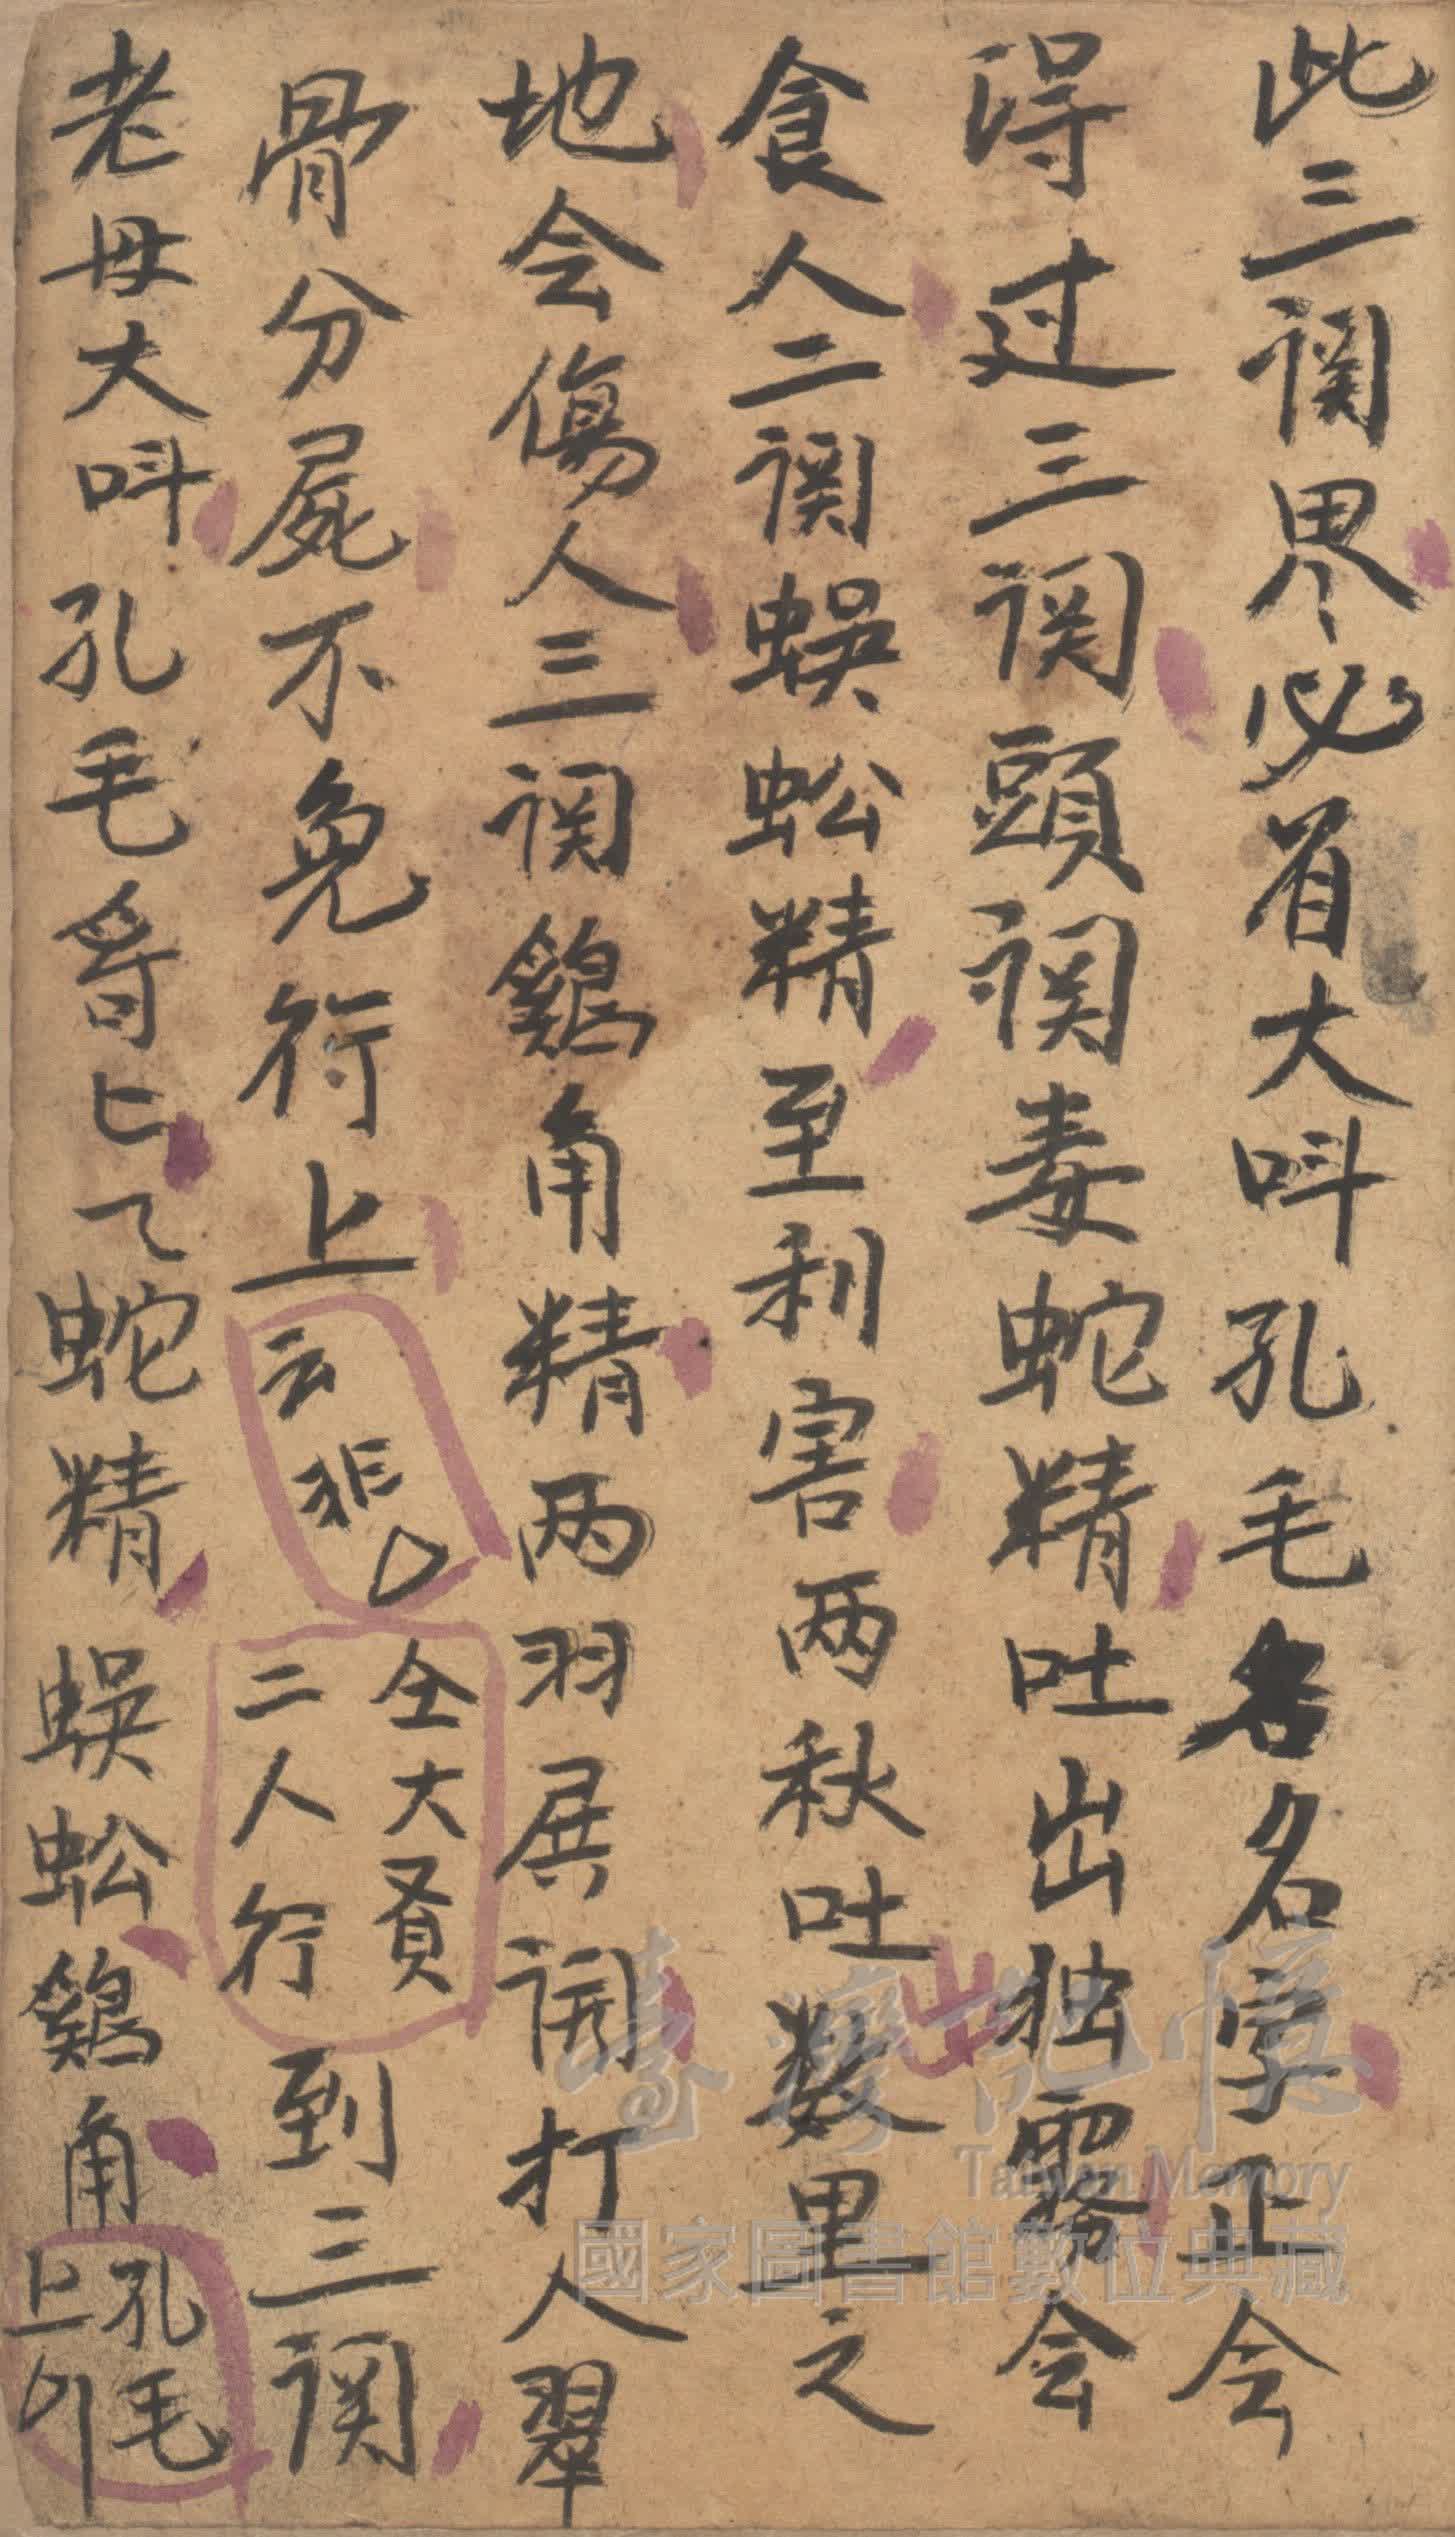 此三関界必着大呌孔毛名名字正会
淂过三関頭関毒蛇精吐出独雾会
食人二関蜈蚣精至利害两秋吐数里之
地会傷人三関鷄角精两羽展開打人翠
骨分屍不免行上
云非
仝大贤
二人行
到三関
老母大呌孔毛哥上 蛇精蜈蚣鷄角
孔毛
上
臺灣記憶
Taiwan Memory
國家圖書館數位典藏